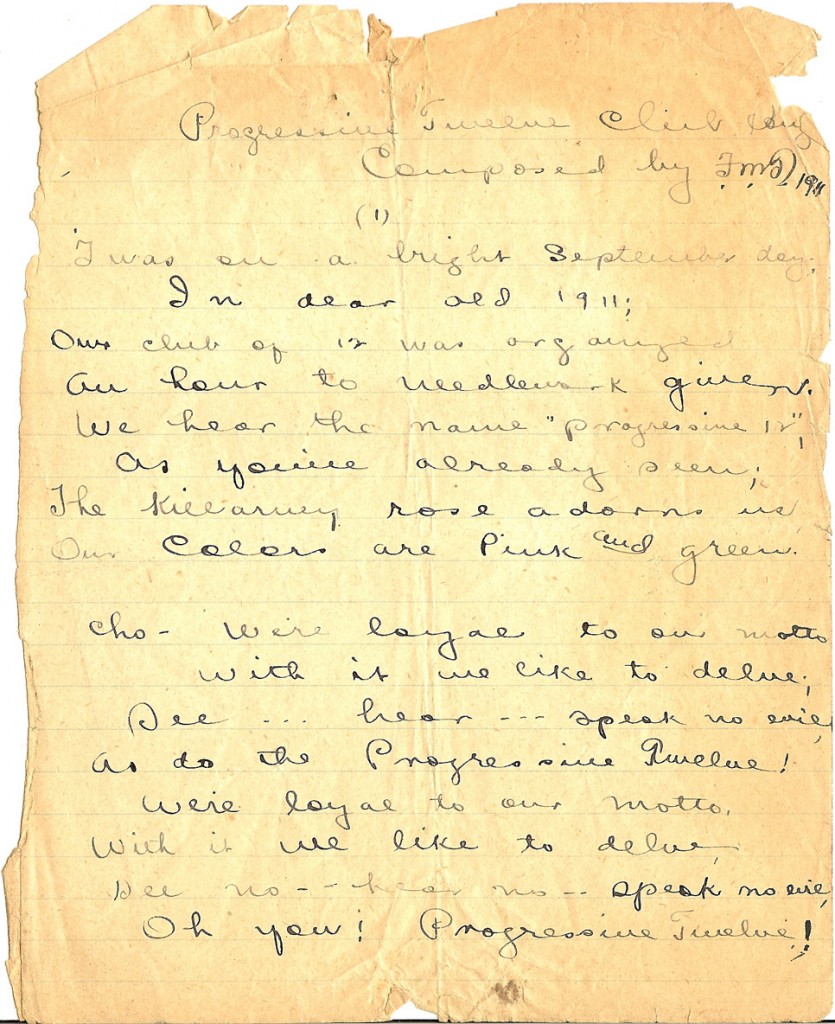 Progressive Twelve Club Song
Composed by 1911
(1)
'Twas on a bright September day,
In dear old 1911;
Our club of 12 was organized
An hour to needlework given.
We hear the name "Progressive 12",
As you've already seen;
The Killarney rose adorns us,
Our Colors are Pink and green.
Cho- We're loyal to our motto
With it we like to delve;
See ... hear --- speak no evil,
As do the Progressive Twelve!
We're loyal to our motto,
With it we like to delve,
See no -- hear no -- speak no evil,
Oh you! Progressive Twelve!